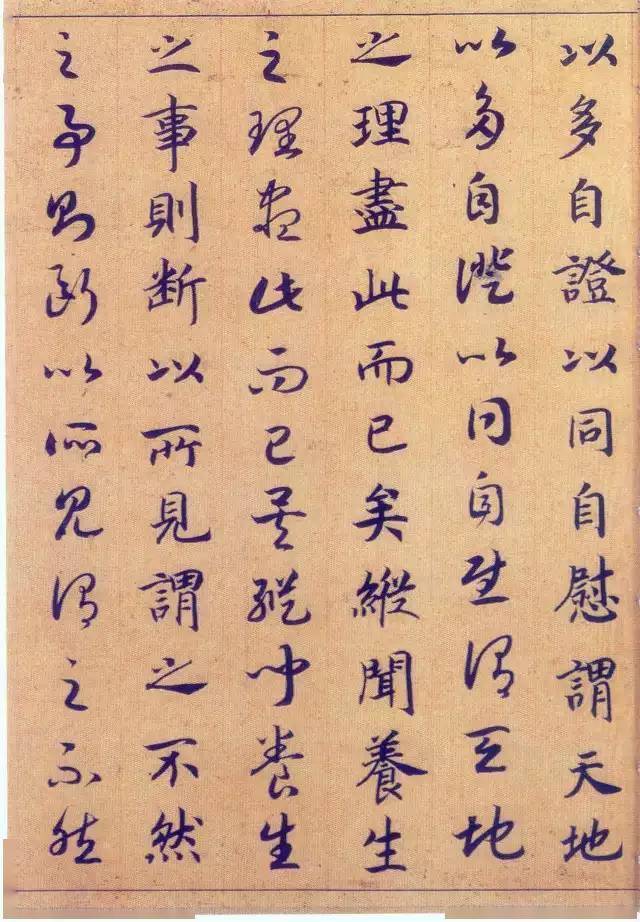 以多自證以同自慰謂天地
以多自證以同自慰謂天地
之理盡此而已矣縱聞養生
之理盡此而已矣縱聞養生
之事則断以所見謂之不然
之事則断以所見謂之不然